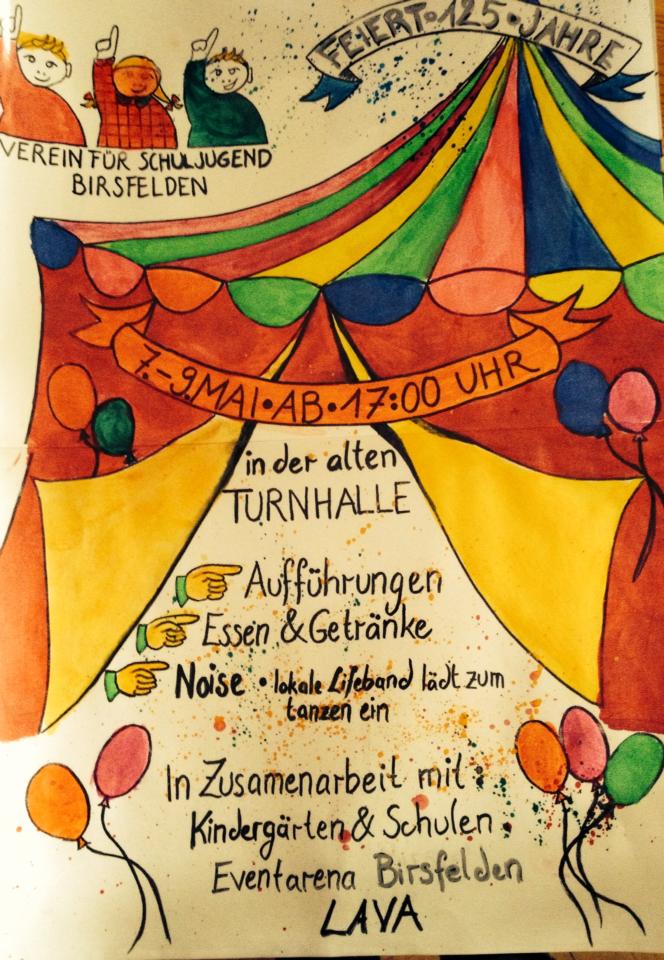 FEIERT • 125 • JAHRE
VEREIN FÜR SCHULJUGEND
BIRSFELDEN
7.-9.MAI•AB•17:00 UHR
in der alten
TURNHALLE
Aufführungen
Essen & Getränke
Noise • lokale Lifeband lädt zum
tanzen ein
In Zusamenarbeit mit:
Kindergärten & Schulen
Eventarena Birsfelden
LAVA